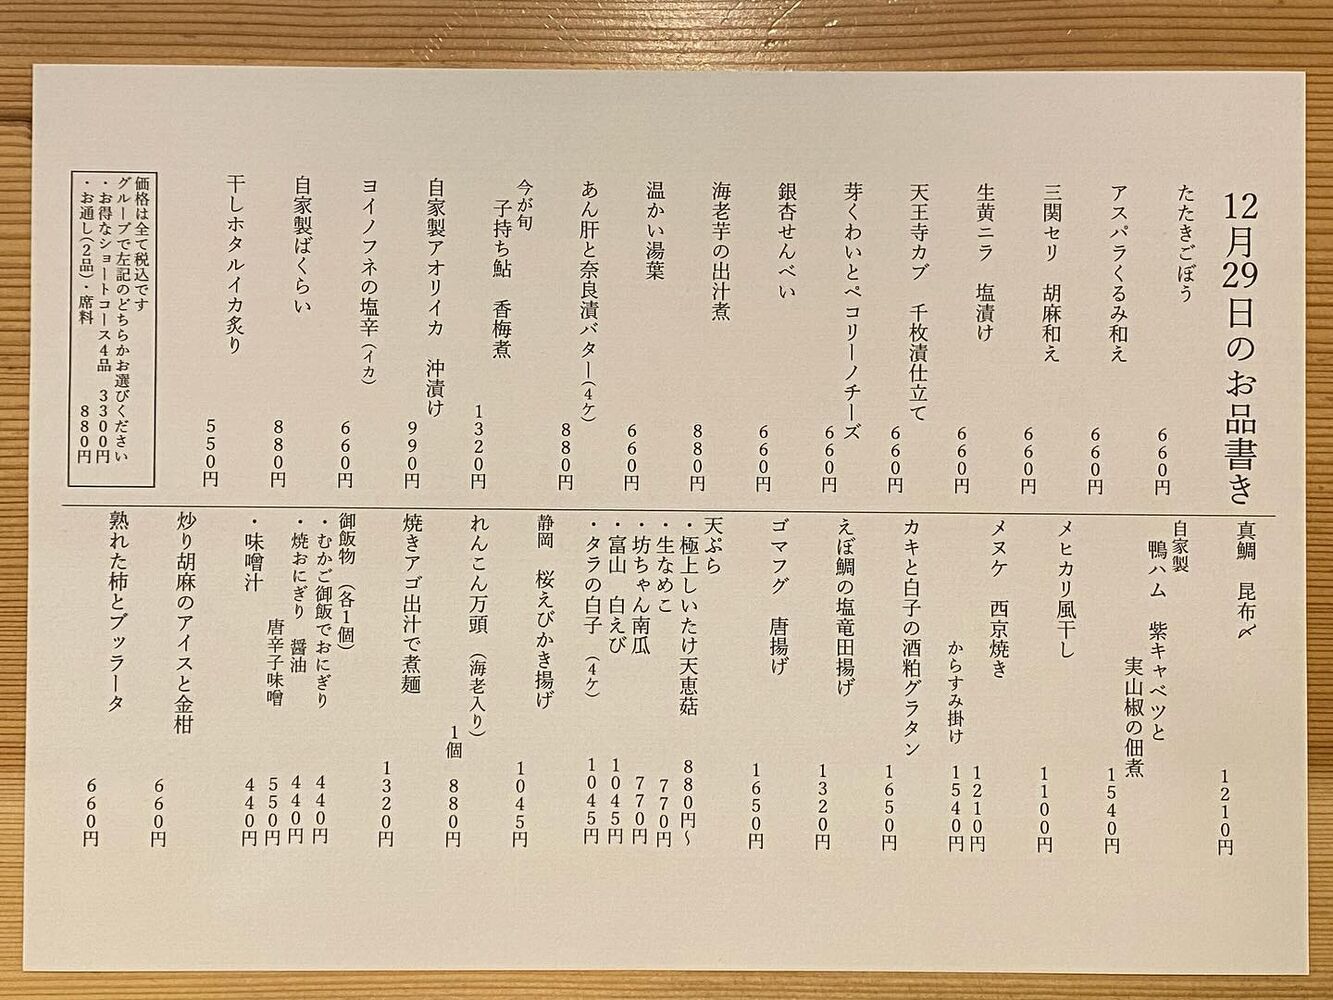 12月29日のお品書き
たたきごぼう
660円
アスパラくるみ和え
660円
三関セリ 胡麻和え
660円
生黄ニラ 塩漬け
660円
天王寺カブ 千枚漬仕立て
660円
芽くわいとペコリーノチーズ
660円
銀杏せんべい
660円
海老芋の出汁煮
880円
温かい湯葉
660円
あん肝と奈良漬バター(4ケ)
880円
今が旬
子持ち鮎 香梅煮
1320円
自家製アオリイカ 沖漬け
990円
ヨイノフネの塩辛(イカ)
660円
自家製ばくらい
880円
干しホタルイカ炙り
550円
価格は全て税込です
グループで左記のどちらかお選びください
・お得なショートコース4品 3300円
・お通し(2品)・席料 880円
真鯛 昆布〆
1210円
自家製
鴨ハム 紫キャベツと
実山椒の佃煮
1540円
メヒカリ風干し
1100円
メヌケ 西京焼き
1210円
からすみ掛け
1540円
カキと白子の酒粕グラタン
1650円
えぼ鯛の塩竜田揚げ
1320円
ゴマフグ 唐揚げ
1650円
天ぷら
・極上しいたけ天恵菇 880円〜
・生なめこ 770円
・坊ちゃん南瓜 770円
・富山 白えび 1045円
・タラの白子 (4ケ) 1045円
静岡 桜えびかき揚げ
1045円
れんこん万頭 (海老入り)
1個 880円
焼きアゴ出汁で煮麺
1320円
御飯物 (各1個)
・むかご御飯でおにぎり 440円
・焼おにぎり 醤油 440円
唐辛子味噌 550円
・味噌汁 440円
炒り胡麻のアイスと金柑
660円
熟れた柿とブッラータ
660円